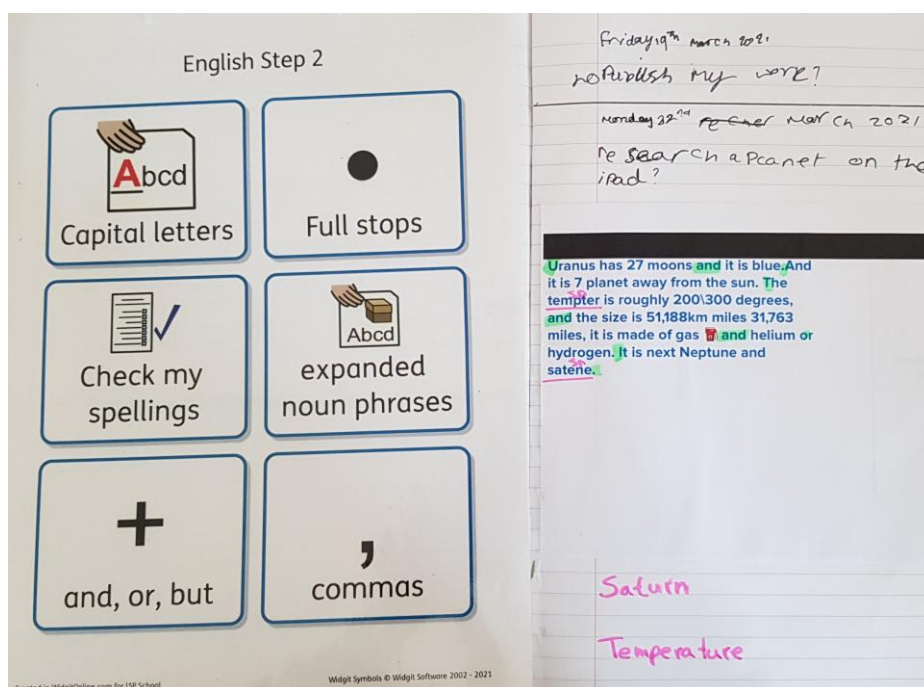 English Step 2
Abcd
Capital letters
Full stops
Check my
spellings
Abcd
expanded
noun phrases
+
and, or, but
,
commas
Widgit Symbols © Widgit Software 2002 - 2021
Friday 19th march 2021
Publish my work?
Monday 22nd March 2021
research a pcanet on the
ipad?
Uranus has 27 moons and it is blue.And
it is 7 planet away from the sun. The
sp
tempter is roughly 200\300 degrees,
and the size is 51,188km miles 31,763
miles, it is made of gas and helium or
hydrogen. It is next Neptune and
sp
satene.
Saturn
Temperature